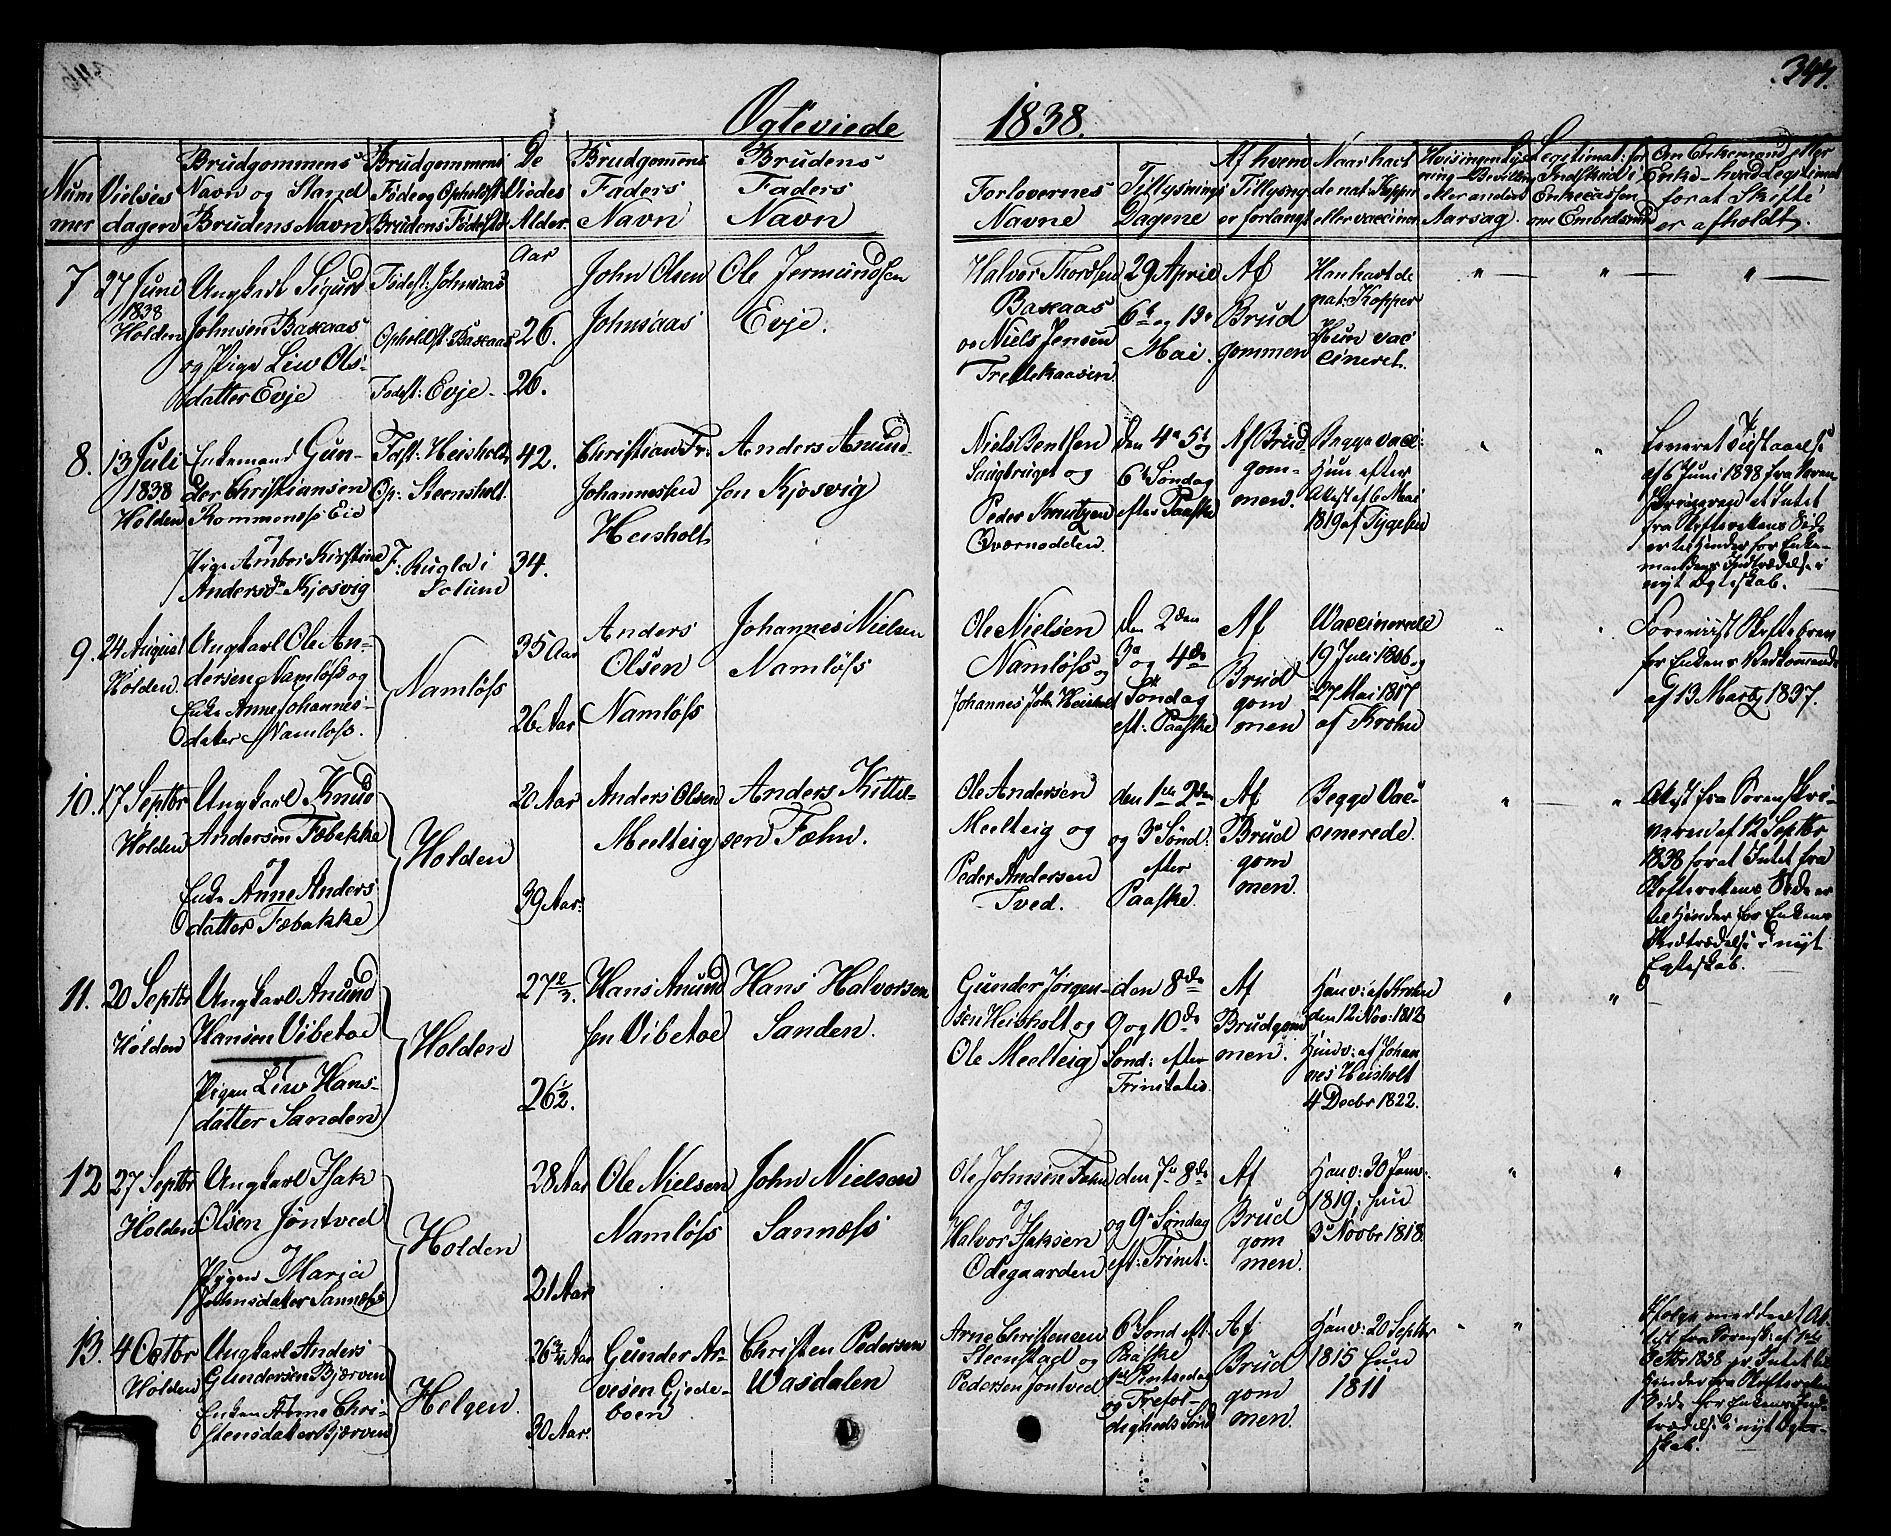 344.
Ægteviede 1838.
Num
mer
Vielses
dagen
Brudgommens
Navn og Stand
Brudens Navn
Brudgommens
Føde og Opholdst
Brudens Fødestd
De
Viedes
Alder.
Brudgomens
Faders
Navn
Brudens
Faders
Navn
Forlovernes
Navne
Tillysnings
Dagene
Af hvem
Tillysng
er forlangt
Naar havt
de nat: Kopper
eller vaccineret
Hvis ingen Lys
ning - Bevilling
eller anden
Aarsag.
Legitimat: for
Indskud i
Enkecassen
om Embedsmd
Om Enkemand eller
Enke - hvad Legitimat
for at Skifte
er afholdt.
7
27 Juni
1838
Holden
Ungkarl Sigurd
Johnsen Baskaas
og Pige Liw Ols
datter Evje
Fødest: Johnsaas
Opholdst: Baskaas
Fødest: Evje
Aar
26.
26.
John Olsen
Johnsaas
Ole Jermundsen
Evje.
Halvor Thordsen
Baskaas
og Niels Jensen
Trellekaasen
29 April
6te og 13e
Mai.
Af
Brud
gommen
Han havt de
nat: Kopper
Hun vac
cineret.
8.
13 Juli
1838
Holden
Enkemand Gun-
der Christiansen
Rommeness Eie
og
Pige Ambor Kirstine
Andersd. Kjosvig
Føst: Heisholt
Op: Steensholt.
F: Rugla i
Solum
42.
34.
Christian Fr:
Johannessen
Heisholt
Anders Anund-
sen Kjosvig
Niels Bentsen
Saugbruget og
Peder Knutzen
Qværnodden
den 4e 5t og
6te Søndag
efter Paaske
Af Brud
gom-
men.
Begge vacc:
Hun efter
Attest af 6 Mai
1819 af Tygesen
Leveret Tilstaaelse
af 6 Juni 1838 fra Soren
skriveren at Intet
fra Skifterettens Side
er til Hinder for Enke-
mandens Indtrædelse i
nyt Ægteskab.
9.
24 August
Holden.
Ungkarl Ole An-
dersen Namløss og
Enke Anne Johannes-
datter Namløss.
Namløss
35 Aar
26 Aar
Anders
Olsen
Namløss
Johannes Nielsen
Namløss
Ole Nielsen
Namløss og
Johannes Joh Heisholt
den 2den
3e og 4de
Søndag
eft: Paaske
Af
Brud
gom
men
Vaccinerede
19 Juli 1806 og
27 Mai 1817
af Krohn
Foreviist Skiftebrev
for Enkens Vedkommende
af 13 Marts 1837.
10.
17 Septbr
Holden
Ungkarl Knud
Andersen Fæbakke
og
Enke Anne Anders
datter Fæbakke
Holden
20 Aar
39 Aar.
Anders Olsen
Meelteig
Anders Kittil-
sen Fæhn.
Ole Andersen
Meelteig og
Peder Andersen
Tved.
den 1ste 2den
og 3e Sønd:
efter
Paaske
Af
Brud
gom
men.
Begge Vac-
cinerede.
Attest fra Sorenskri-
veren af 12 Septbr
1838 for at Intet fra
Skifterettens Side er
til Hinder for Enkens
Indtrædelse i nyt
Egteskab.
11.
20 Septbr
Holden
Ungkarl Anund
Hansen Vibetoe
og
Pigen Liw Hans-
datter Sanden
Holden
27 2/3.
26 1/2.
Hans Anund
sen Vibetoe
Hans Halvorsen
Sanden.
Gunder Jørgen-
sen Heisholt og
Ole Meelteig
den 8de
9 og 10de
Sønd: efter
Trinitatis.
Af
Brudgom
men.
Han v: af Krohn
den 12 Nov: 1812
Hun v: af Johan
nes Heisholt
4 Decbr 1822.
12
27 Septbr
Holden
Ungkarl Isak
Olsen Jøntved
og
Pigen Maria
Johnsdatter Sannæss
Holden
28 Aar
21 Aar
Ole Nielsen
Namløss
John Nielsen
Sannæss
Ole Johnsen Fæhn
og
Halvor Isaksen
Odegaarden
den 7e 8de
og 9e Søndag
eft: Trinit:
Af
Brud
gom
men.
Han v: 30 Janv:
1819; Hun
3e Novbr 1818.
13.
4 Octbr
Holden
Ungkarl Anders
Gundersen Bjærven
Enken Anne Chri-
stensdatter Bjærven
Helgen.
26 3/4 Aar
30 Aar
Gunder Ar
vesen Gjede-
boen
Christen Pedersen
Wasdalen
Arne Christensen
Steenstad og
Pedersen Jontved
6te Sønd eft:
Paaske
1ste Pintsedag
og Trefol-
digheds Sønd
Af
Brud
gom
men.
Han v: 20 Septbr
1815 Hun
1811
Ifølge meddeelt At-
test fra Sorensk: af 1ste
Octbr 1838 er Intet til
Hinder fra Skifterettens
Side for Enkens Ind-
trædelse i nyt Ægte-
skab.